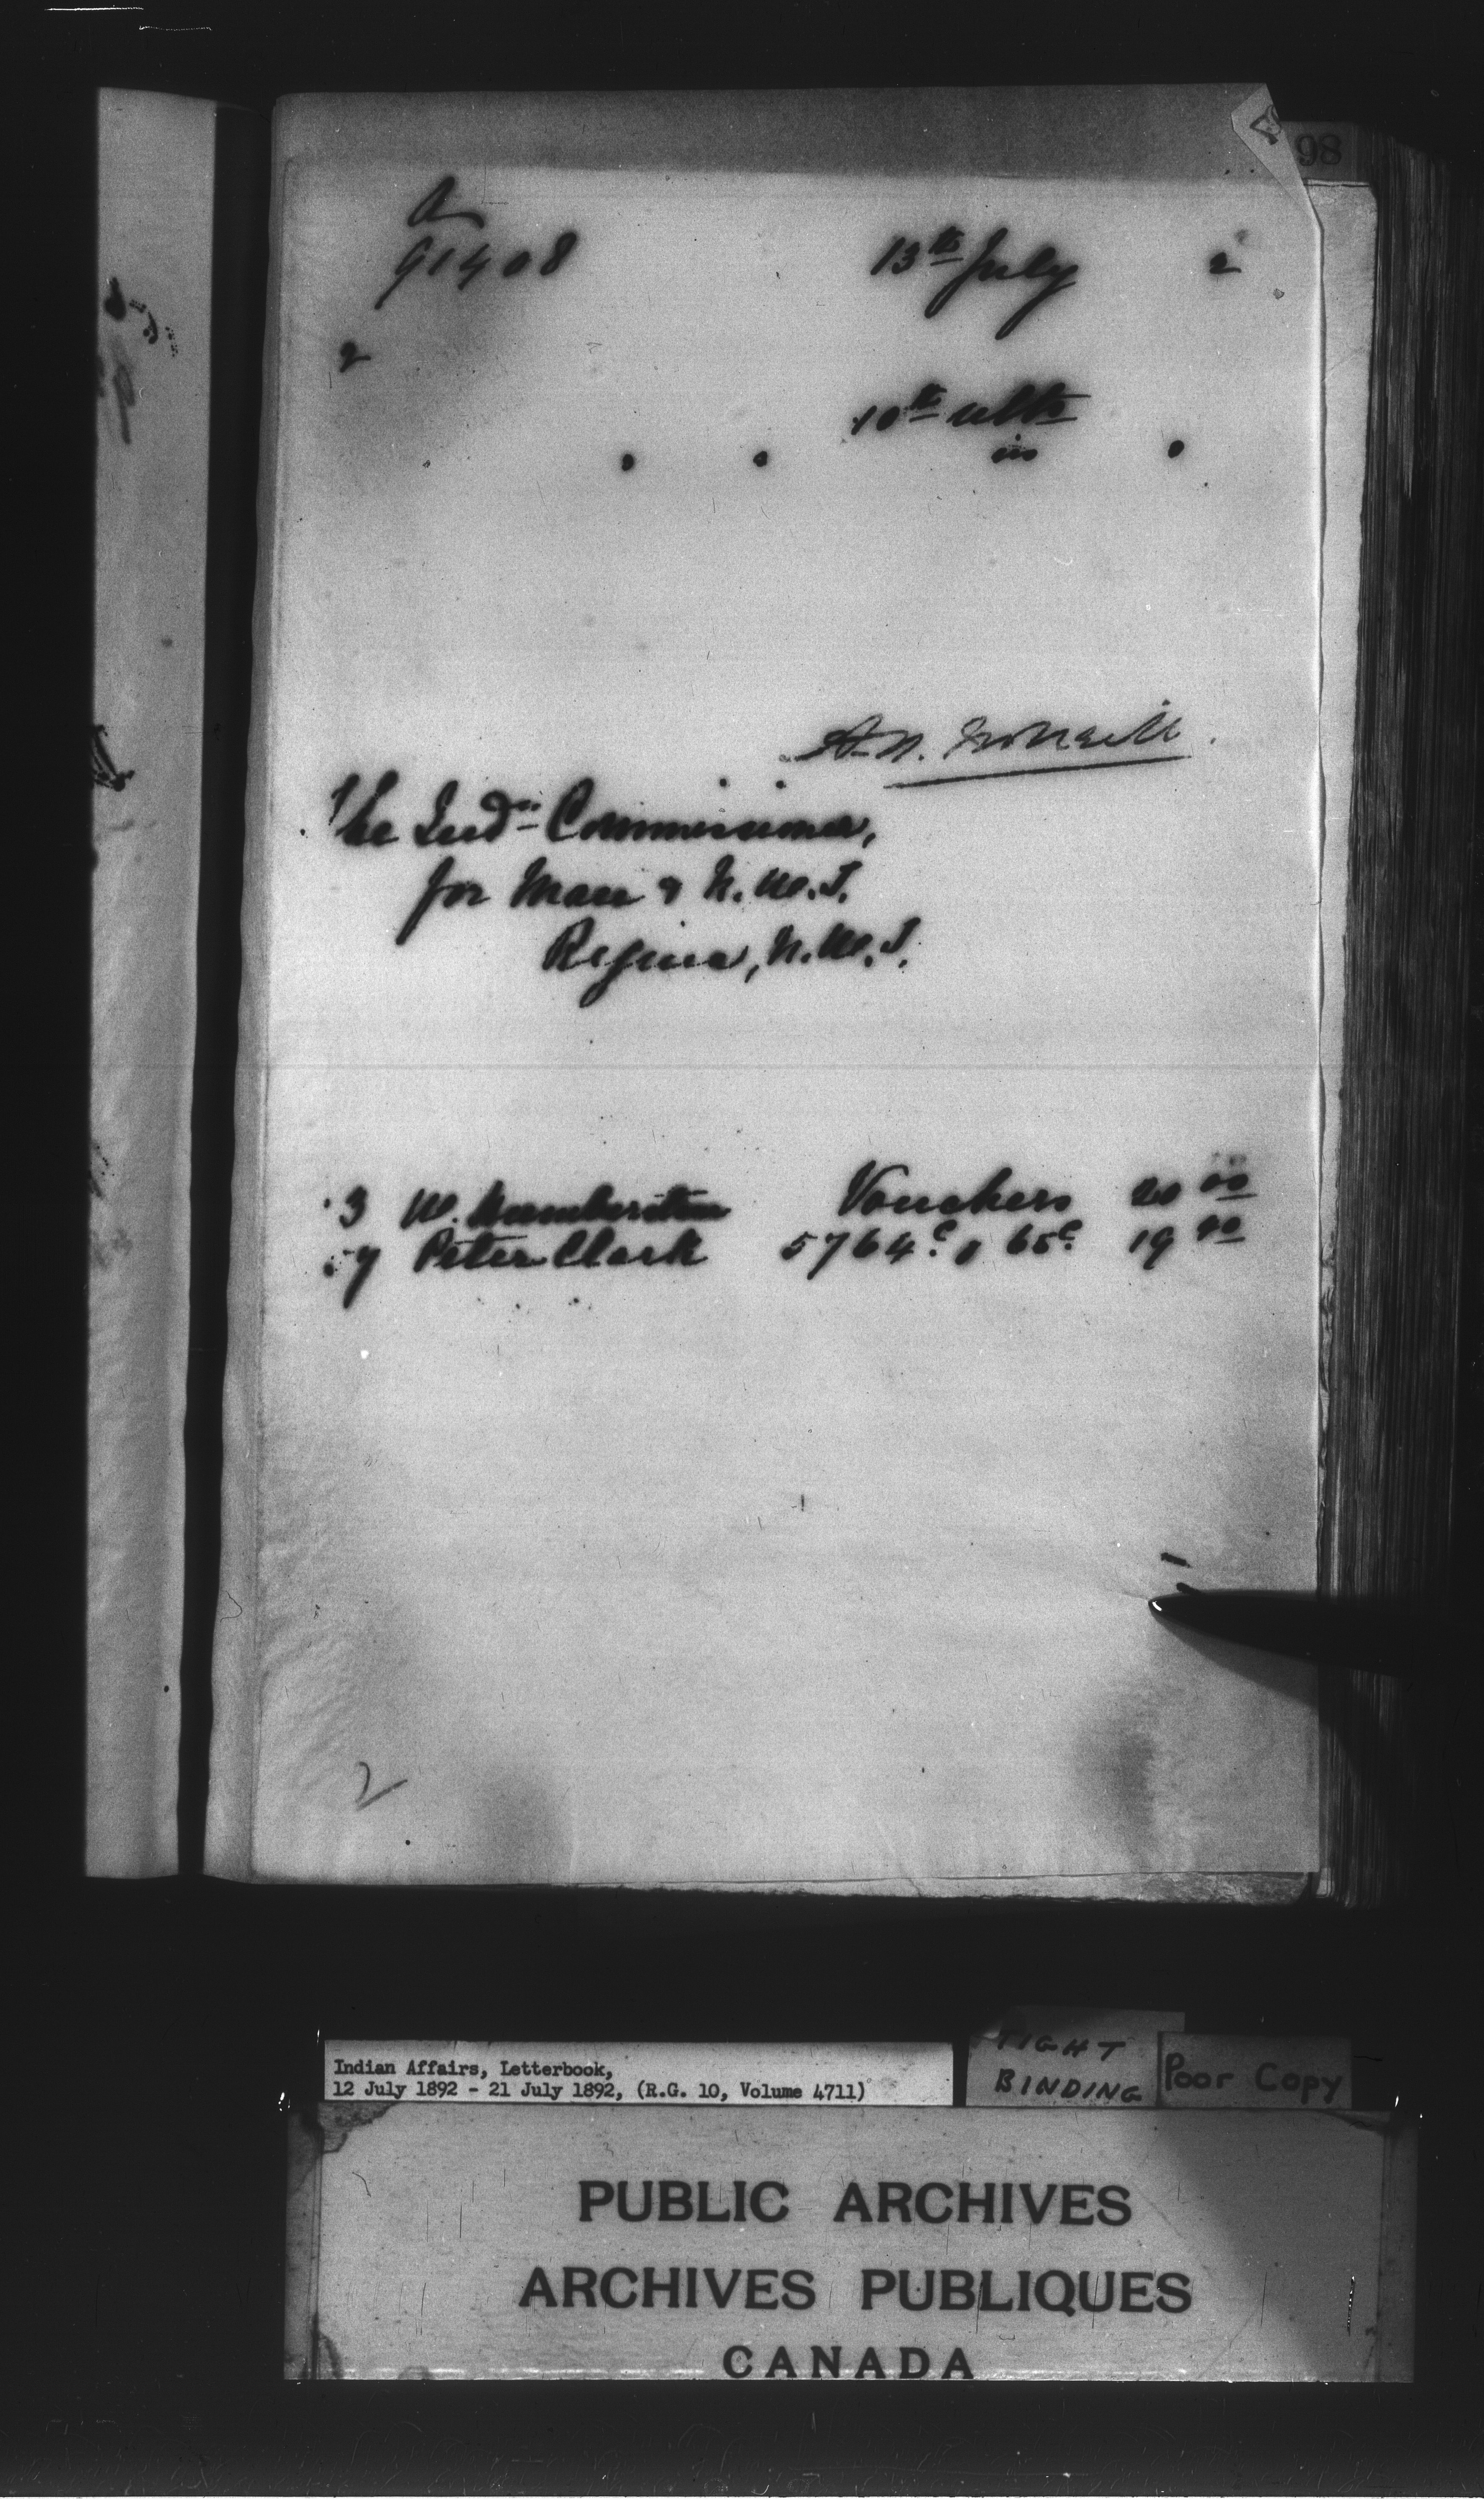 98
A
91408 13th July 2
2
10th ulto
in
The Indn Commissioner,
for Man & N.W.T.
Regina, N.W.T.
3 W. Vouchers 20 00
57 Peter Clark 5764c, 65c 19
2
Indian Affairs, Letterbook,
12 July 1892 - 21 July 1892, (R.G. 10, Volume 4711)
TIGHT
BINDING
Poor Copy
PUBLIC ARCHIVES
ARCHIVES PUBLIQUES
CANADA